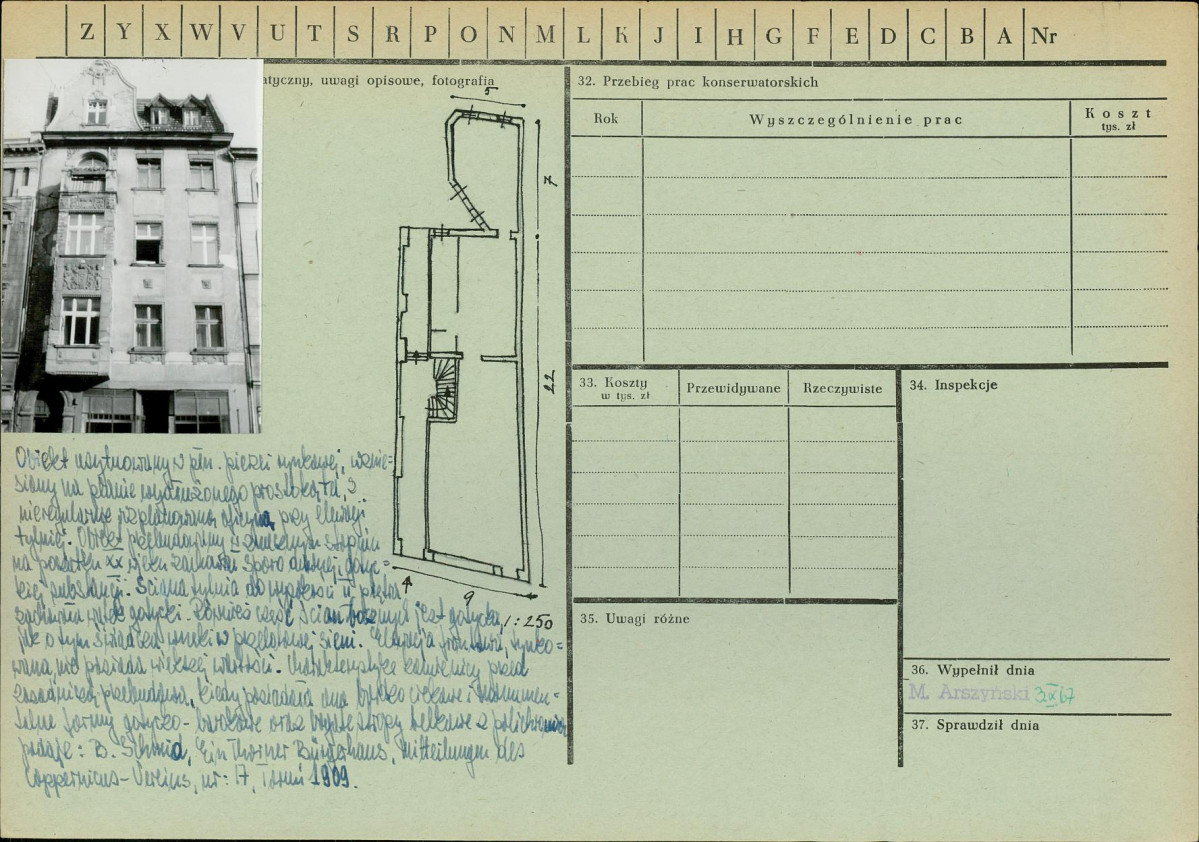 Z Y X W V U T S R P O N M L K J I H G F E D C B A Nr
tyczny, uwagi opisowe, fotografia
5
7
22
4
9
1:250
Obiekt usytuowany w płn. pierzei rynkowej, wznie-
siony na planie wydłużonego prostokąta, z
nieregularnie rozplanowaną oficyną przy elewacji
tylnej. Obiekt przebudowany w znacznym stopniu
na początku XX wieku zachował sporo dawnej, gotyc-
kiej substancji. Ściana tylnia do wysokości II piętra
zachowała wątek gotycki. Również część ścian bocznych jest gotycka,
jak o tym świadczą wnęki w przelotowej sieni. Elewacja frontowa, tynko-
wana, nie posiada większej wartości. Charakterystykę kamienicy przed
zasadniczą przebudową, kiedy posiadała ona bardzo ciekawe i monumen-
talne formy gotycko-barokowe oraz bogate stropy belkowe z polichromią
podaje: B. Schmid, Ein Thorner Bürgerhaus, Mitteilungen des
Coppernicus-Vereins, nr: 17, Toruń 1909.
32. Przebieg prac konserwatorskich
Rok
Wyszczególnienie prac
Koszt
tys. zł
33. Koszty
w tys. zł
Przewidywane
Rzeczywiste
34. Inspekcje
35. Uwagi różne
36. Wypełnił dnia
M. Arszyński 3 XI 67
37. Sprawdził dnia